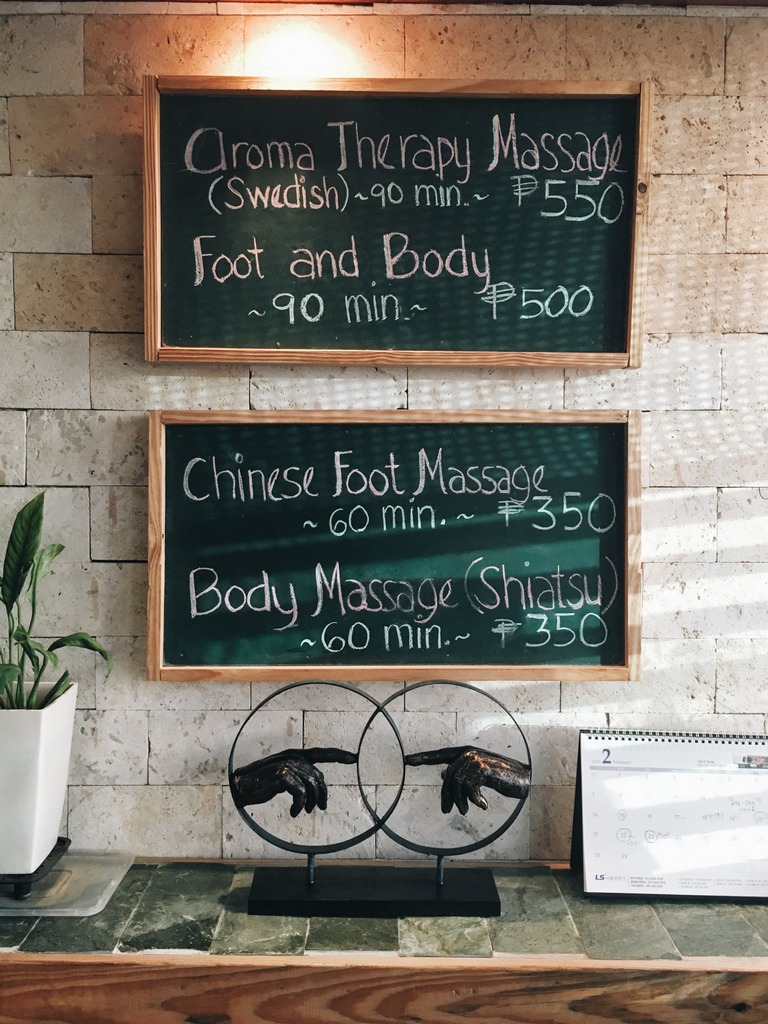 Aroma Therapy Massage
(Swedish) ~ 90 min. ~ ₱550
Foot and Body
~ 90 min. ~ ₱500
Chinese Foot Massage
~ 60 min. ~ ₱350
Body Massage (Shiatsu)
~ 60 min. ~ ₱350
2 February
LS